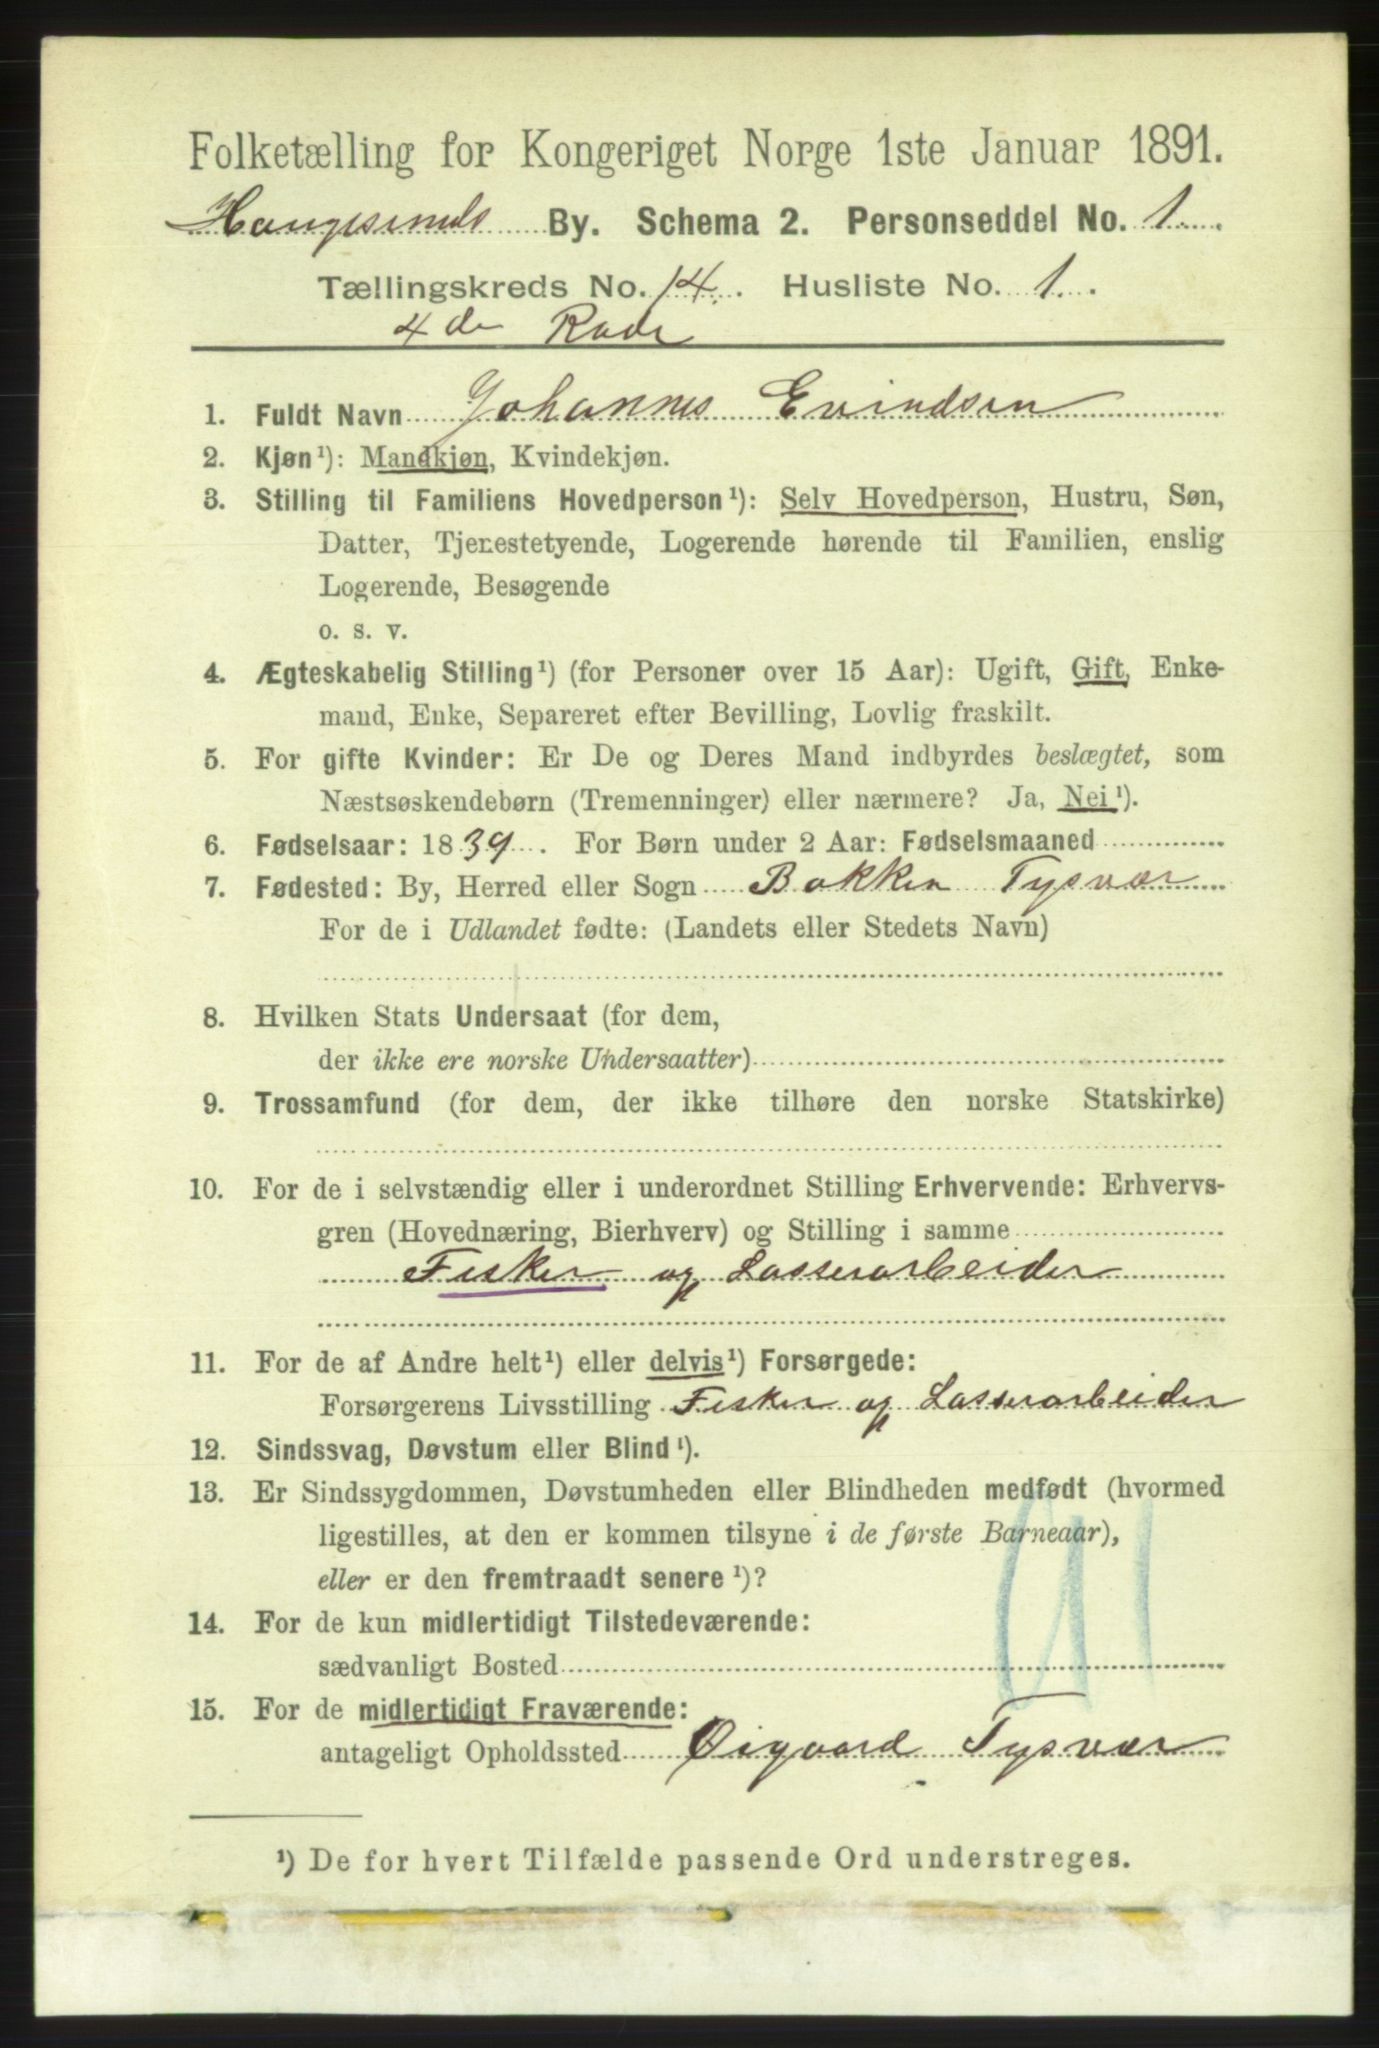 Folketælling for Kongeriget Norge 1ste Januar 1891.
Haugesunds By. Schema 2. Personseddel No. 1.
Tællingskreds No. 14. Husliste No. 1.
4de Rode
1. Fuldt Navn Johannes Evindsen
2. Kjøn¹): Mandkjøn, Kvindekjøn.
3. Stilling til Familiens Hovedperson¹): Selv Hovedperson, Hustru, Søn,
Datter, Tjenestetyende, Logerende hørende til Familien, enslig
Logerende, Besøgende
o. s. v.
4. Ægteskabelig Stilling¹) (for Personer over 15 Aar): Ugift, Gift, Enke-
mand, Enke, Separeret efter Bevilling, Lovlig fraskilt.
5. For gifte Kvinder: Er De og Deres Mand indbyrdes beslægtet, som
Næstsøskendebørn (Tremenninger) eller nærmere? Ja, Nei¹).
6. Fødselsaar: 1839. For Børn under 2 Aar: Fødselsmaaned
7. Fødested: By, Herred eller Sogn Bokken Tysvær
For de i Udlandet fødte: (Landets eller Stedets Navn)
8. Hvilken Stats Undersaat (for dem,
der ikke ere norske Undersaatter)
9. Trossamfund (for dem, der ikke tilhøre den norske Statskirke)
10. For de i selvstændig eller i underordnet Stilling Erhvervende: Erhvervs-
gren (Hovednæring, Bierhverv) og Stilling i samme
Fisker og Lossearbeider
11. For de af Andre helt¹) eller delvis¹) Forsørgede:
Forsørgerens Livsstilling Fisker og Lossearbeider
12. Sindssvag, Døvstum eller Blind¹).
13. Er Sindssygdommen, Døvstumheden eller Blindheden medfødt (hvormed
ligestilles, at den er kommen tilsyne i de første Barneaar),
eller er den fremtraadt senere¹)?
14. For de kun midlertidigt Tilstedeværende:
sædvanligt Bosted
15. For de midlertidigt Fraværende:
antageligt Opholdssted Øigaard Tysvær
¹) De for hvert Tilfælde passende Ord understreges.